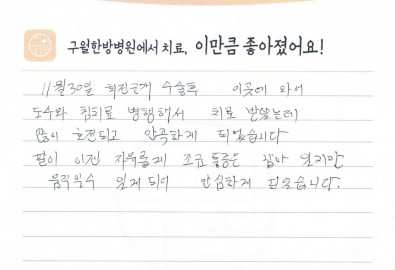 구월한방병원에서 치료, 이만큼 좋아졌어요!
11월30일 회전근개 수술후 이곳에 와서
도수와 침치료 병행해서 치료 받았는데
많이 호전되고 만족하게 되었습니다
팔이 이젠 자유롭게 조금 통증은 남아 있지만
움직일수 있게 되어 안심하게 되었습니다.